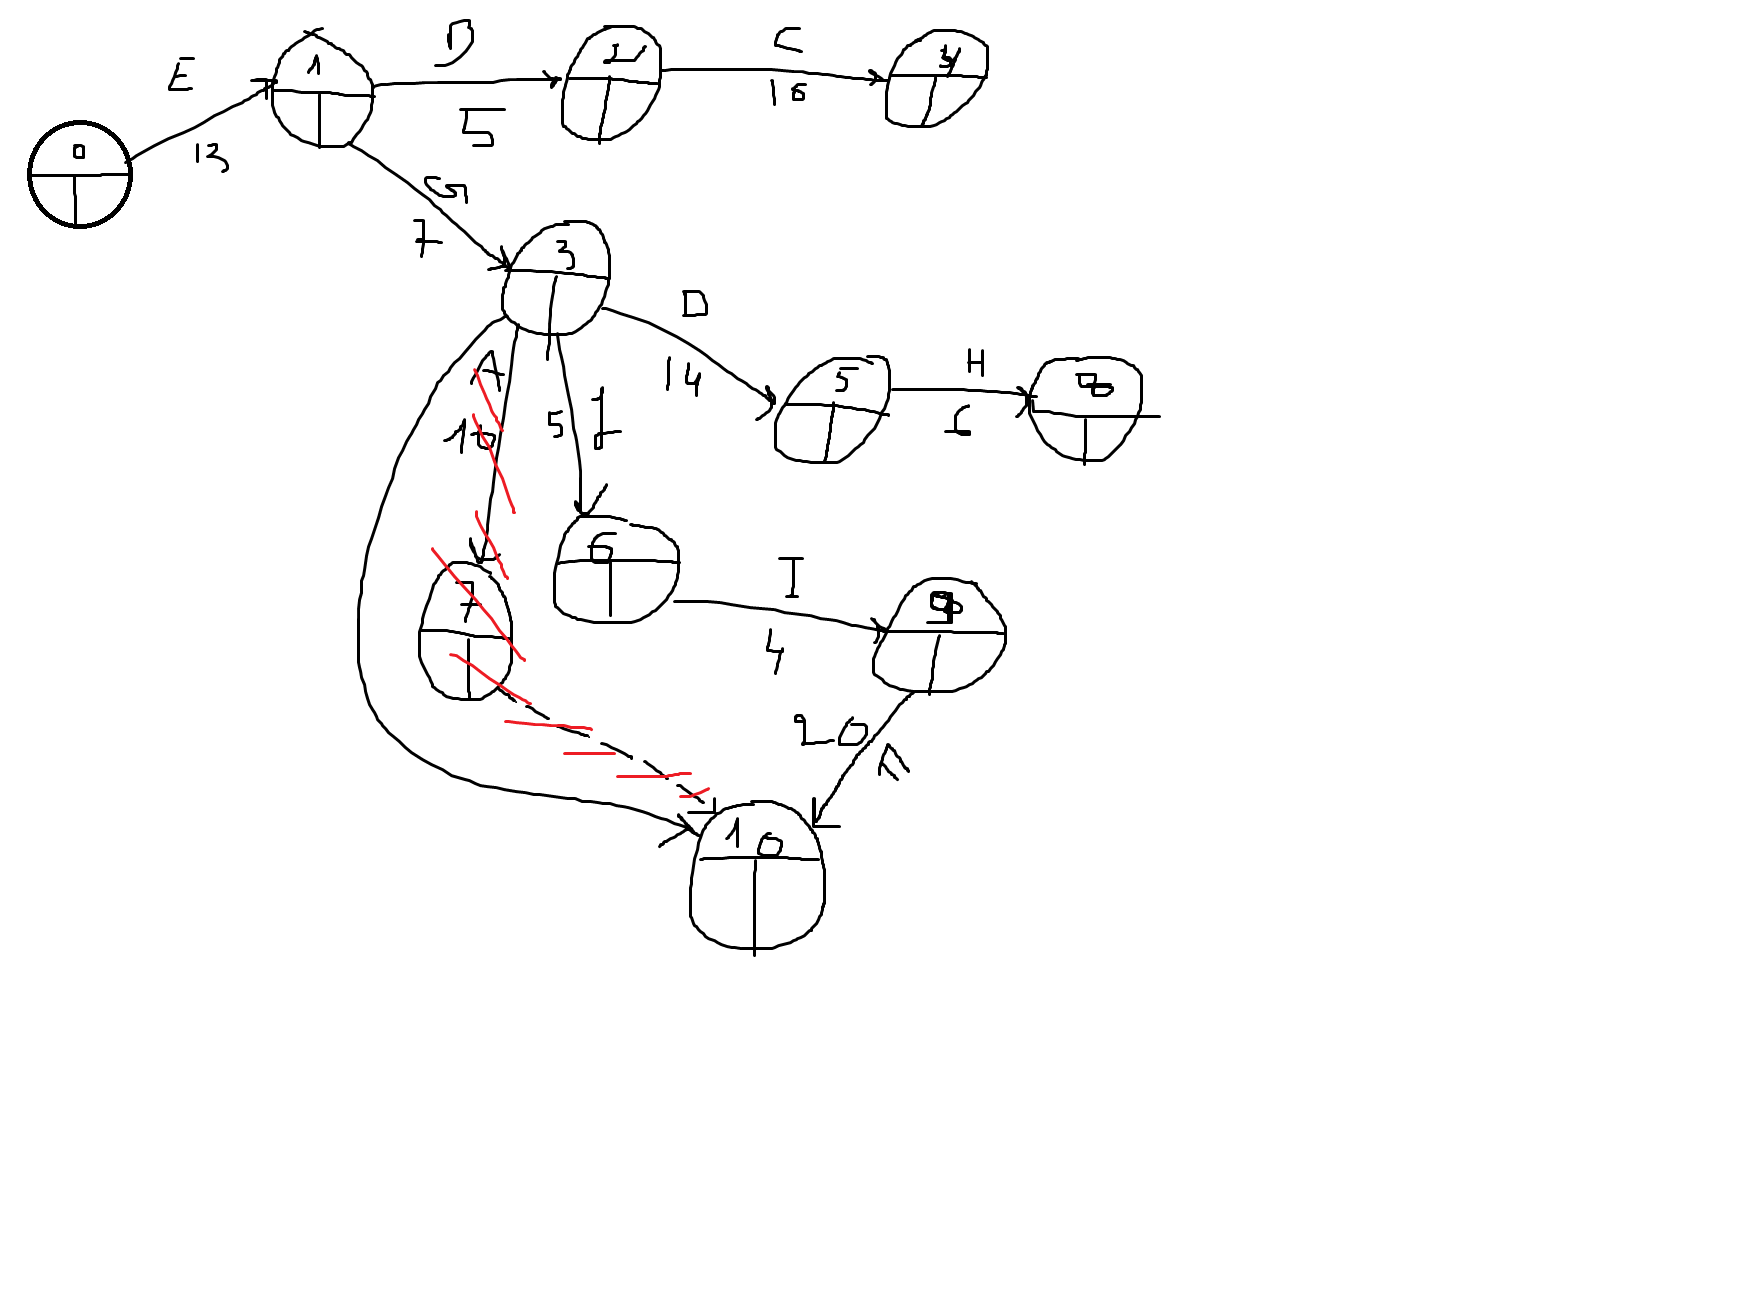 E
13
0
1
B
5
2
C
16
4
G
7
3
D
14
5
H
6
8
A
10
J
5
6
7
I
4
9
20
F
10